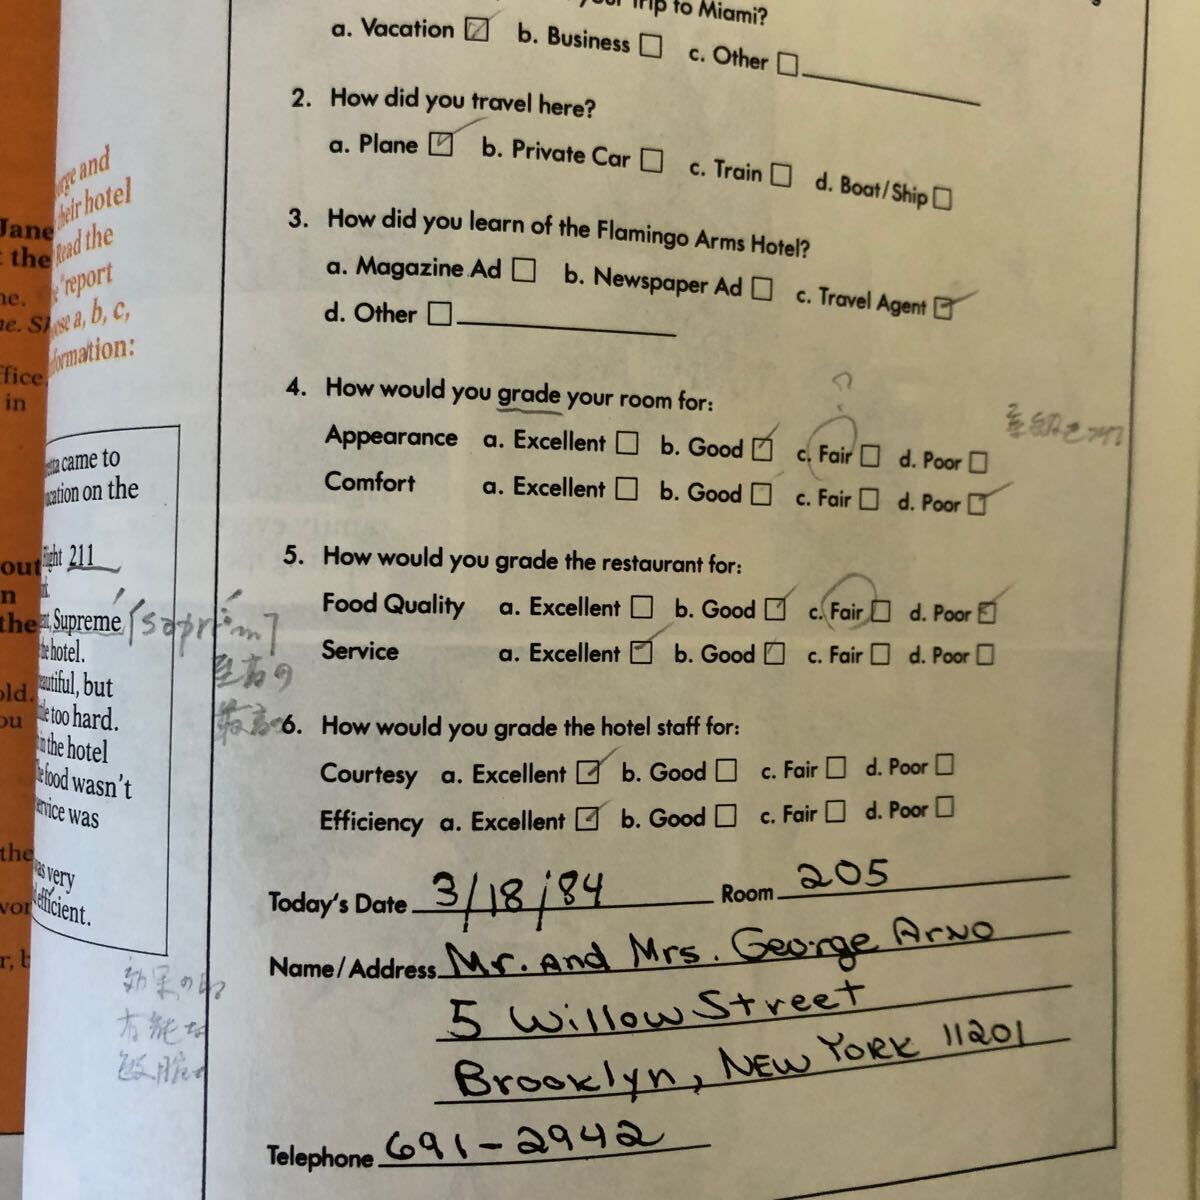 Trip to Miami?
a. Vacation ☑ b. Business ☐ c. Other ☐
2. How did you travel here?
a. Plane ☑ b. Private Car ☐ c. Train ☐ d. Boat/Ship ☐
3. How did you learn of the Flamingo Arms Hotel?
a. Magazine Ad ☐ b. Newspaper Ad ☐ c. Travel Agent ☑
d. Other ☐
4. How would you grade your room for:
Appearance a. Excellent ☐ b. Good ☑ c. Fair ☐ d. Poor ☐
Comfort a. Excellent ☐ b. Good ☐ c. Fair ☐ d. Poor ☑
5. How would you grade the restaurant for:
Food Quality a. Excellent ☐ b. Good ☑ c. Fair ☐ d. Poor ☑
Service a. Excellent ☑ b. Good ☑ c. Fair ☐ d. Poor ☐
6. How would you grade the hotel staff for:
Courtesy a. Excellent ☑ b. Good ☐ c. Fair ☐ d. Poor ☐
Efficiency a. Excellent ☑ b. Good ☐ c. Fair ☐ d. Poor ☐
Today's Date 3/18/84 Room 205
Name/Address Mr. and Mrs. George Arno
5 Willow Street
Brooklyn, New York 11201
Telephone 691-2942
and
their hotel
Read the
"report
a, b, c,
came to
on the
211
Supreme
hotel.
but
too hard.
in the hotel
food wasn't
was
very
efficient.
至高の
Jane
the
in
out
the
the